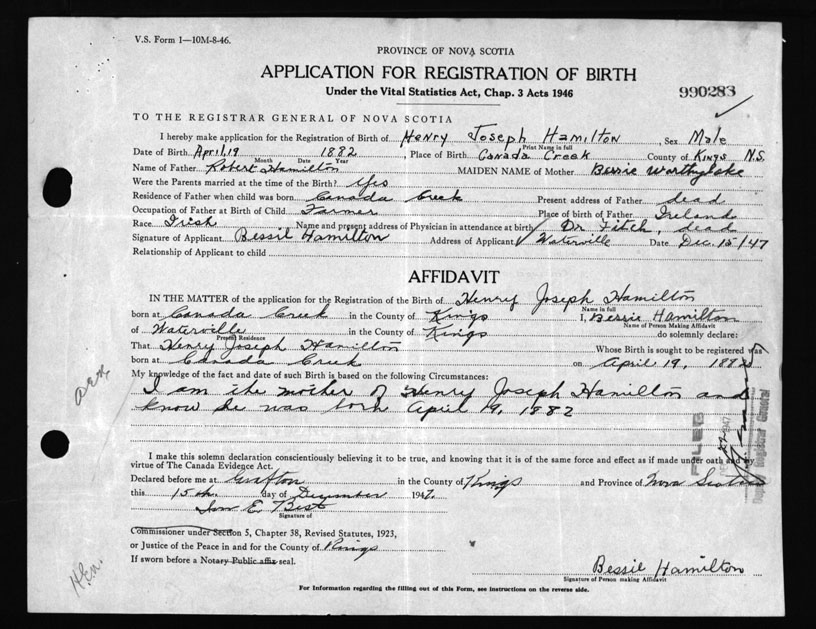 V.S. Form 1—10M-8-46.
PROVINCE OF NOVA SCOTIA
APPLICATION FOR REGISTRATION OF BIRTH
Under the Vital Statistics Act, Chap. 3 Acts 1946
990283
TO THE REGISTRAR GENERAL OF NOVA SCOTIA
I hereby make application for the Registration of Birth of Henry Joseph Hamilton, Sex Male
Print Name in full
Date of Birth April, 19 1882, Place of Birth Canada Creek County of Kings N.S.
Month Date Year
Name of Father Robert Hamilton MAIDEN NAME of Mother Bessie
Were the Parents married at the time of the Birth? Yes
Residence of Father when child was born Canada Creek Present address of Father dead
Occupation of Father at Birth of Child Farmer Place of birth of Father Ireland
Race Irish Name and present address of Physician in attendance at birth Dr Fitch, dead
Signature of Applicant Bessil Hamilton Address of Applicant Waterville Date Dec. 15/47
Relationship of Applicant to child
AFFIDAVIT
IN THE MATTER of the application for the Registration of the Birth of Henry Joseph Hamilton
Name in full
born at Canada Creek in the County of Kings I, Bessie Hamilton
Name of Person Making Affidavit
of Waterville in the County of Kings do solemnly declare:
Present Residence
That Henry Joseph Hamilton Whose Birth is sought to be registered was
born at Canada Creek on April 19, 1882
My knowledge of the fact and date of such Birth is based on the following Circumstances:
I am the mother of Henry Joseph Hamilton and
know he was born April 19, 1882
FILED
Deputy Registrar General
I make this solemn declaration conscientiously believing it to be true, and knowing that it is of the same force and effect as if made under oath and by
virtue of The Canada Evidence Act.
Declared before me at Grafton in the County of Kings and Province of Nova Scotia
this 15th day of December 1947.
E. Best
Signature of
Commissioner under Section 5, Chapter 38, Revised Statutes, 1923,
or Justice of the Peace in and for the County of Kings
If sworn before a Notary Public affix seal.
Bessil Hamilton
Signature of Person making Affidavit
For Information regarding the filling out of this Form, see instructions on the reverse side.